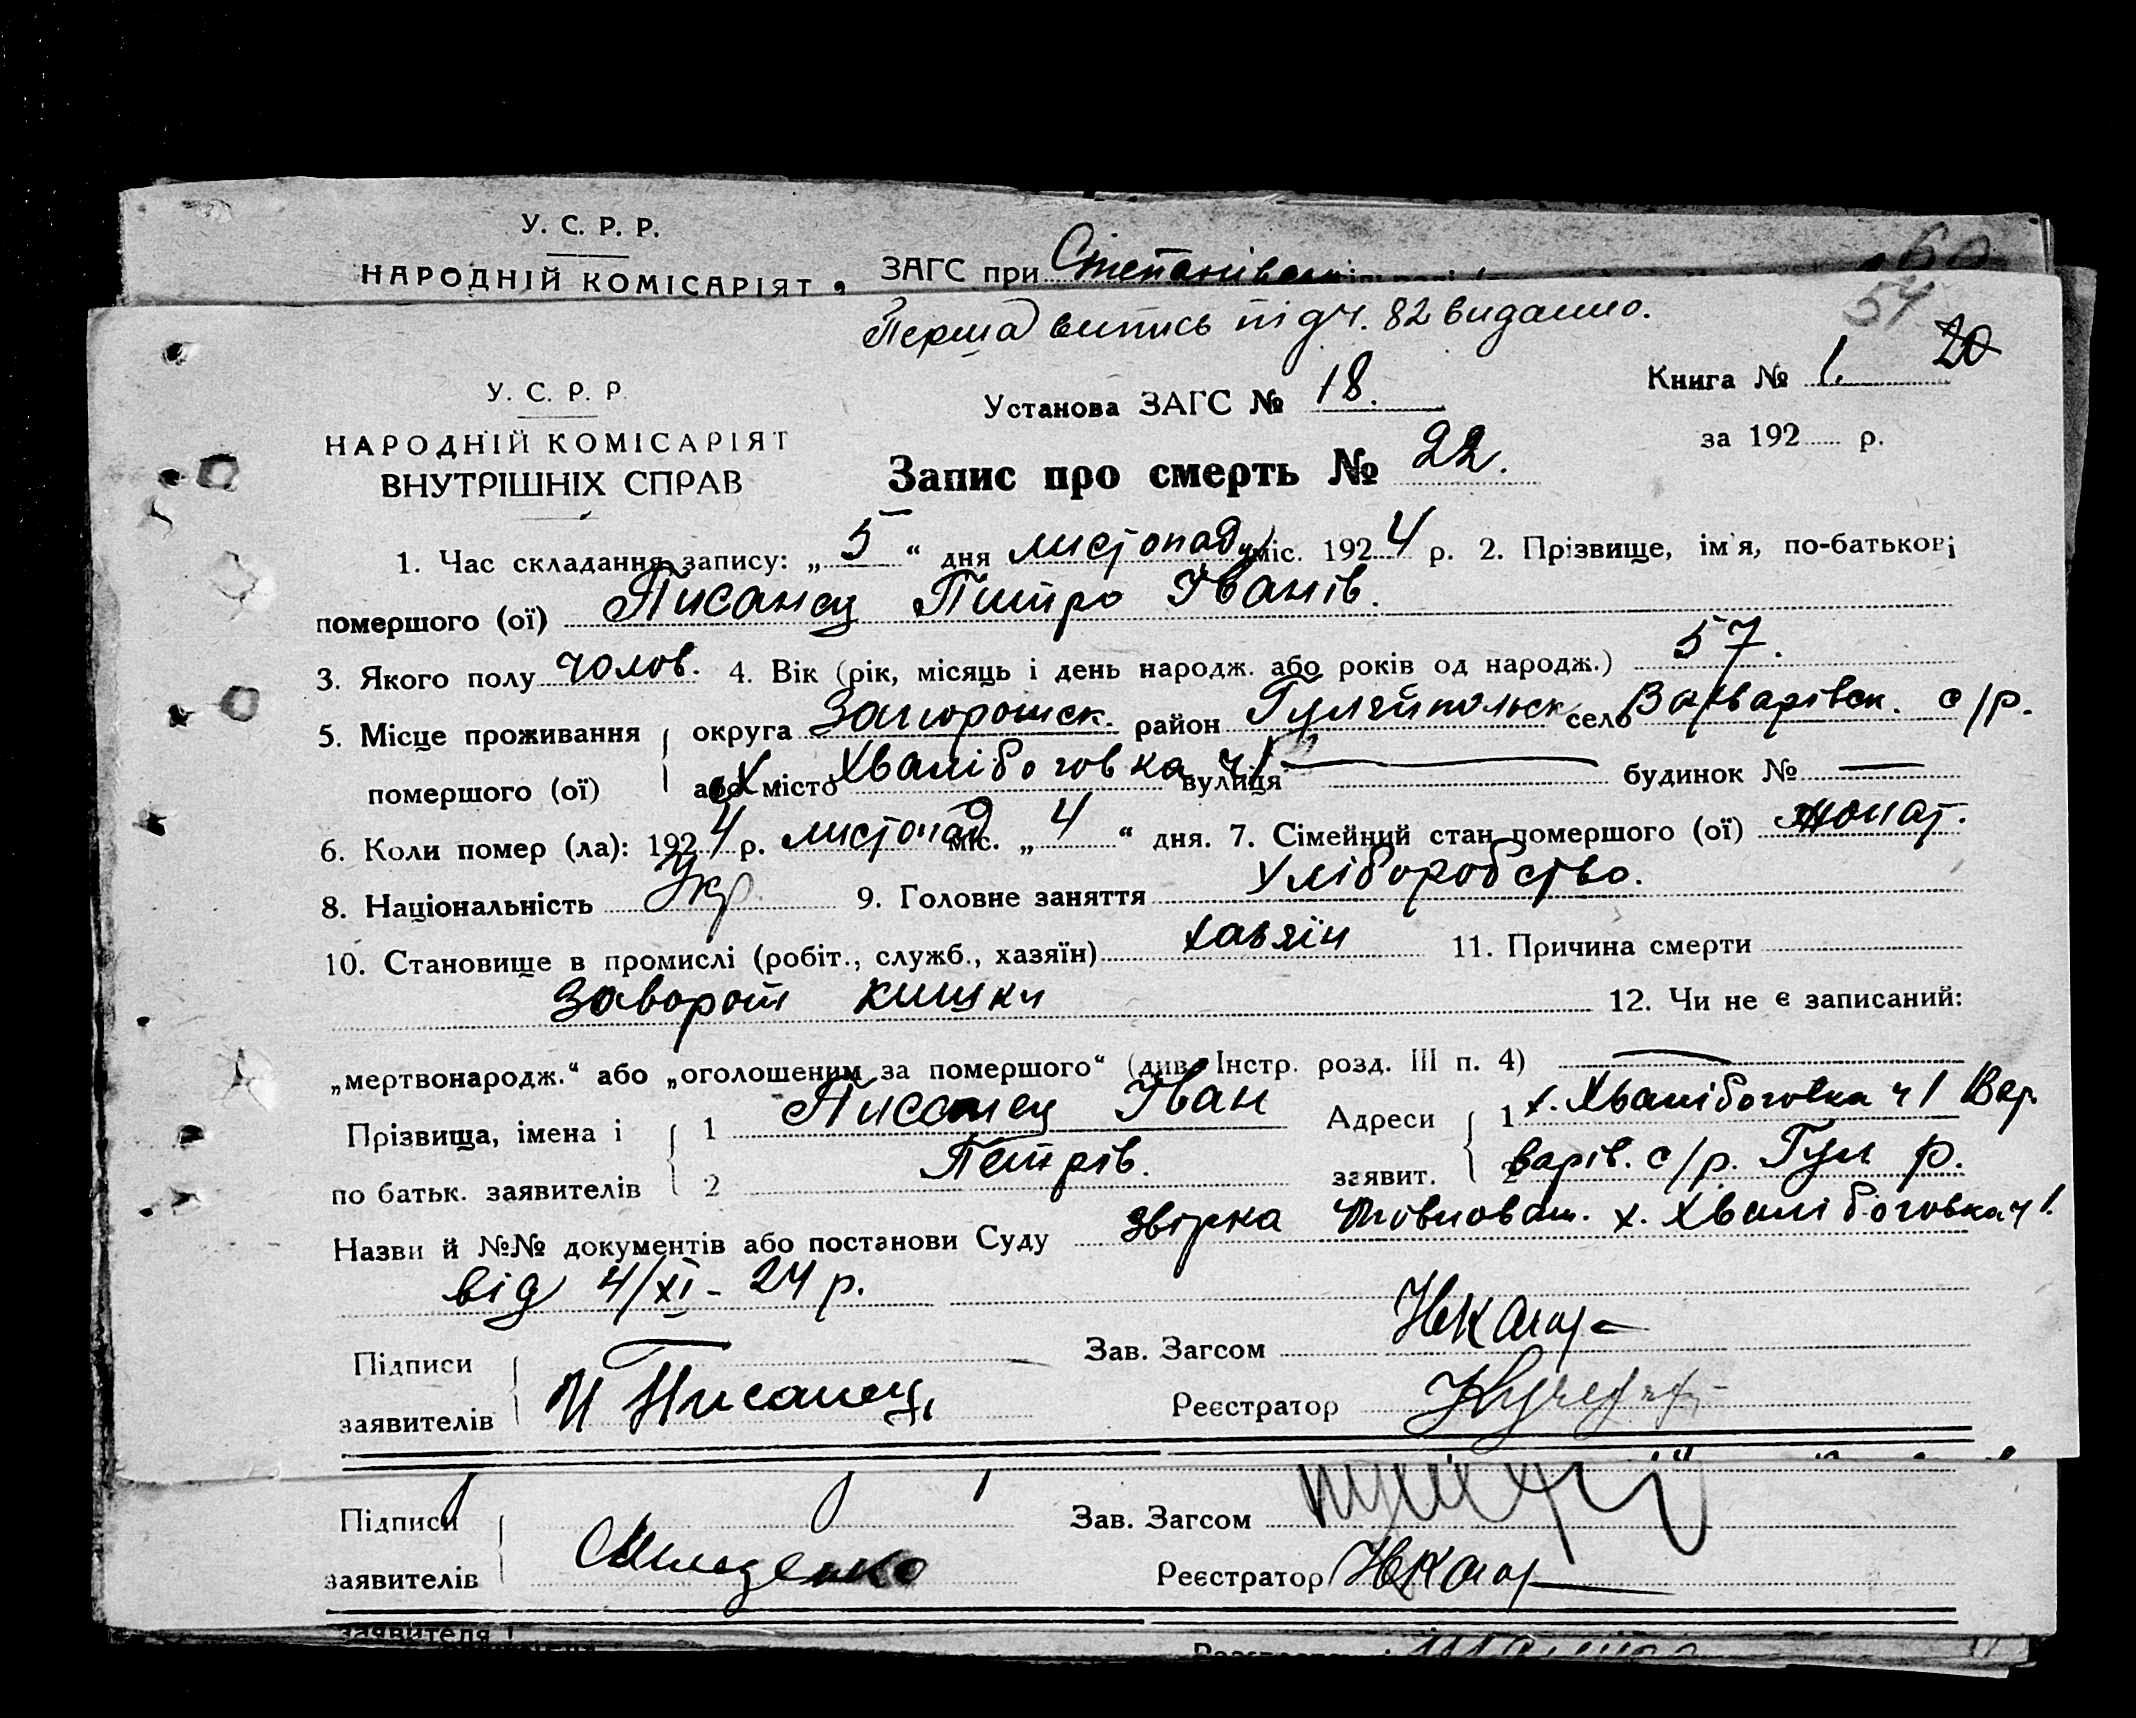 У. С. Р. Р.
НАРОДНІЙ КОМІСАРІЯТ
ЗАГС при
Перша випись під ч. 82 видано.
54
20
У. С. Р. Р.
НАРОДНІЙ КОМІСАРІЯТ
ВНУТРІШНІХ СПРАВ
Установа ЗАГС № 18.
Книга № 1.
за 192 р.
Запис про смерть № 22.
1. Час складання запису: „ 5 “ дня листопаду міс. 1924 р. 2. Прізвище, ім'я, по-батькові
помершого (ої) Писанец Питро Іванів.
3. Якого полу чолов. 4. Вік (рік, місяць і день народж. або років од народж.) 57.
5. Місце проживання помершого (ої) округа Запорошск. район Гуляйпольск село Варварівск. с/р.
або місто х Хвалібоговка ч 1 вулиця — будинок № —
6. Коли помер (ла): 1924 р. листопад міс. „ 4 “ дня. 7. Сімейний стан помершого (ої) жонат.
8. Національність Укр. 9. Головне заняття Хліборобство.
10. Становище в промислі (робіт., служб., хазяїн) хазяїн 11. Причина смерти
Заворот кишки 12. Чи не є записаний:
„мертвонародж.“ або „оголошеним за помершого“ (див. Інстр. розд. III п. 4) —
Прізвища, імена і 1 Писанец Іван Адреси 1 х. Хвалібоговка ч 1 Вар
по батьк. заявителів 2 Петрів. заявит. 2 варів. с/р. Гул р.
Назви й №№ документів або постанови Суду Звірка х. Хвалібоговка ч 1.
від 4/XI - 24 р.
Підписи
заявителів И Писанец,
Зав. Загсом
Реєстратор
Підписи
заявителів
Зав. Загсом
Реєстратор
заявителя